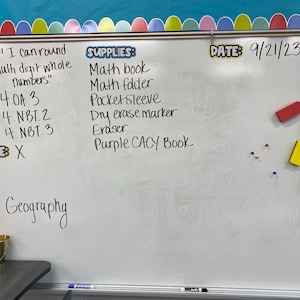 "I can round
multi digit whole
numbers"
4.OA.3
4.NBT.2
4.NBT.3
E: X
Geography
SUPPLIES:
Math book
Math folder
Pocket sleeve
Dry erase marker
Eraser
Purple CACY Book
DATE: 9/21/23